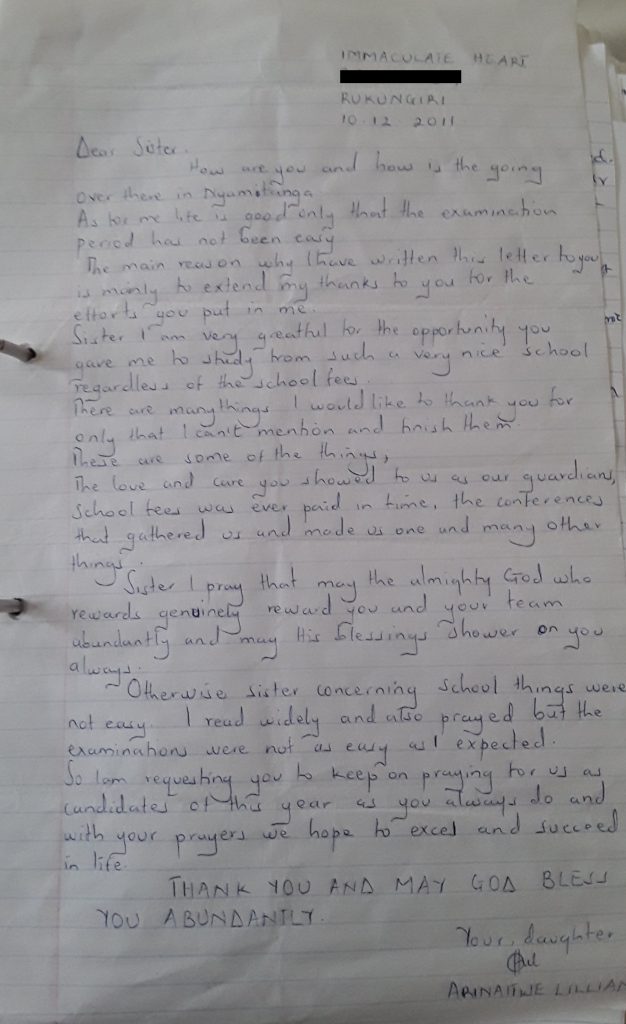 IMMACULATE HEART
RUKUNGIRI
10.12 2011
Dear Sister.
How are you and how is the going
over there in Nyamitanga
As for me life is good only that the examination
period has not been easy
The main reason why I have written this letter to you
is mainly to extend my thanks to you for the
efforts you put in me.
Sister I am very greatful for the opportunity you
gave me to study from such a very nice school
regardless of the school fees.
There are many things I would like to thank you for
only that I can't mention and finish them.
These are some of the things,
The love and care you showed to us as our guardians,
School fees was ever paid in time, the conferences
that gathered us and made us one and many other
things.
Sister I pray that may the almighty God who
rewards genuinely reward you and your team
abundantly and may His blessings shower on you
always.
Otherwise sister concerning school things were
not easy. I read widely and also prayed but the
examinations were not as easy as I expected.
So I am requesting you to keep on praying for us as
candidates of this year as you always do and
with your prayers we hope to excel and succeed
in life.
THANK YOU AND MAY GOD BLESS
YOU ABUNDANTLY.
Your, daughter
ARINAITWE LILLIAN